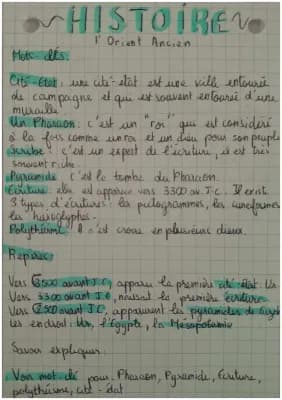 HISTOIRE
l'Orient Ancien
Mots-clés:
Cité-Etat: une cité-état est une ville entourée
de campagne et qui est souvent entourée d'une
muraille
Un Pharaon: c'est un "roi" qui est considéré
à la fois comme un roi et un dieu pour son peuple
Scribe: c'est un expert de l'écriture, il est très
souvent riche.
Pyramide c'est le tombe du Pharaon.
Ecriture elle est apparue vers 3300 av. J.C. Il exist
3 types d'écritures: les pictogrammes, les cuneiformes
les hiéroglyphes.
Polythéisme: c'est croire en plusieurs dieux.
Repères:
Vers 3500 avant J.C, apparu la première cité-état: Ur.
Vers 3300 avant J.C, naissait la première écriture
Vers 2500 avant J.C, apparurent les pyramides de
les endroit: Ur, l'Egypte, la Mésopotamie
Savoir expliquer:
Voir mot clé pour: Pharaon, Pyramide, Ecriture,
polythéisme, cité-état